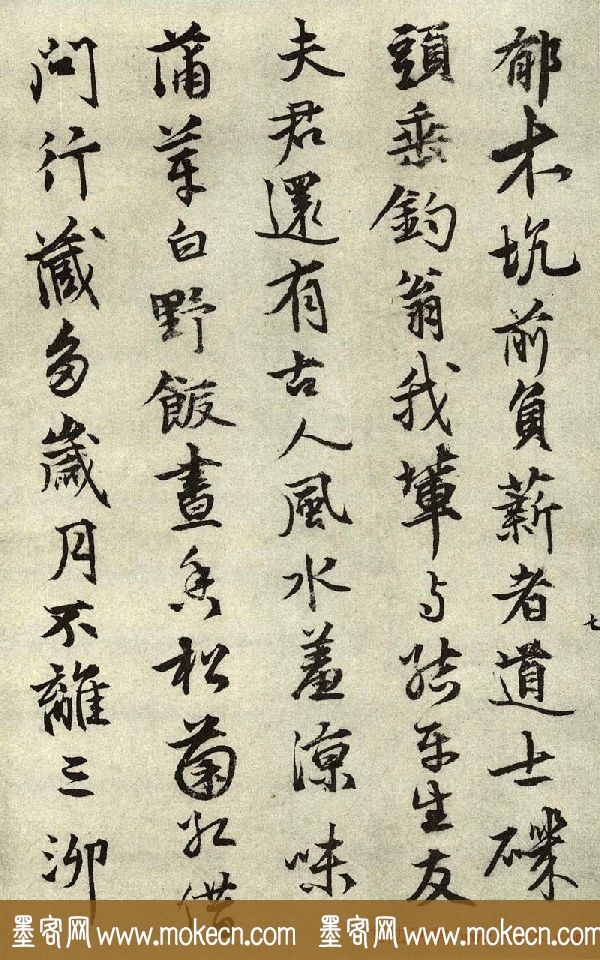 郁木坑前負薪者道士磯
頭垂釣翁我輩与結平生友
夫君還有古人風水羞凉味
蒲芽白野飯晝香松菌紅借
問行藏多歲月不離三泖
七
墨客网 www.mokecn.com 墨客网 www.mokecn.com